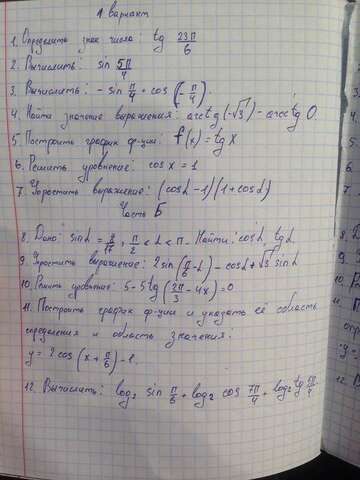 1 вариант
1. Определить знак числа: tg 23π/6
2. Вычислить: sin 5π/4
3. Вычислить: - sin π/4 + cos(-π/4).
4. Найти значение выражения: arctg(-√3) - arcctg 0.
5. Построить график ф-ции: f(x) = tg x
6. Решить уровнение: cos x = 1
7. Упростить выражение: (cosα - 1)(1 + cosα)
Часть Б
8. Дано: sinα = , π/2 < α < π. Найти: cosα, tgα.
9. Упростить выражение: 2 sin(π/6 - α) - cosα + √3 sinα
10. Решить уровнение: 5 - 5 tg(2π/3 - 4x) = 0
11. Построить график ф-ции и указать её область
определения и область значения.
y = 2 cos(x + π/6) - 2.
12. Вычислить: log₂ sin π/6 + log₂ cos 7π/4 + log₂ tg